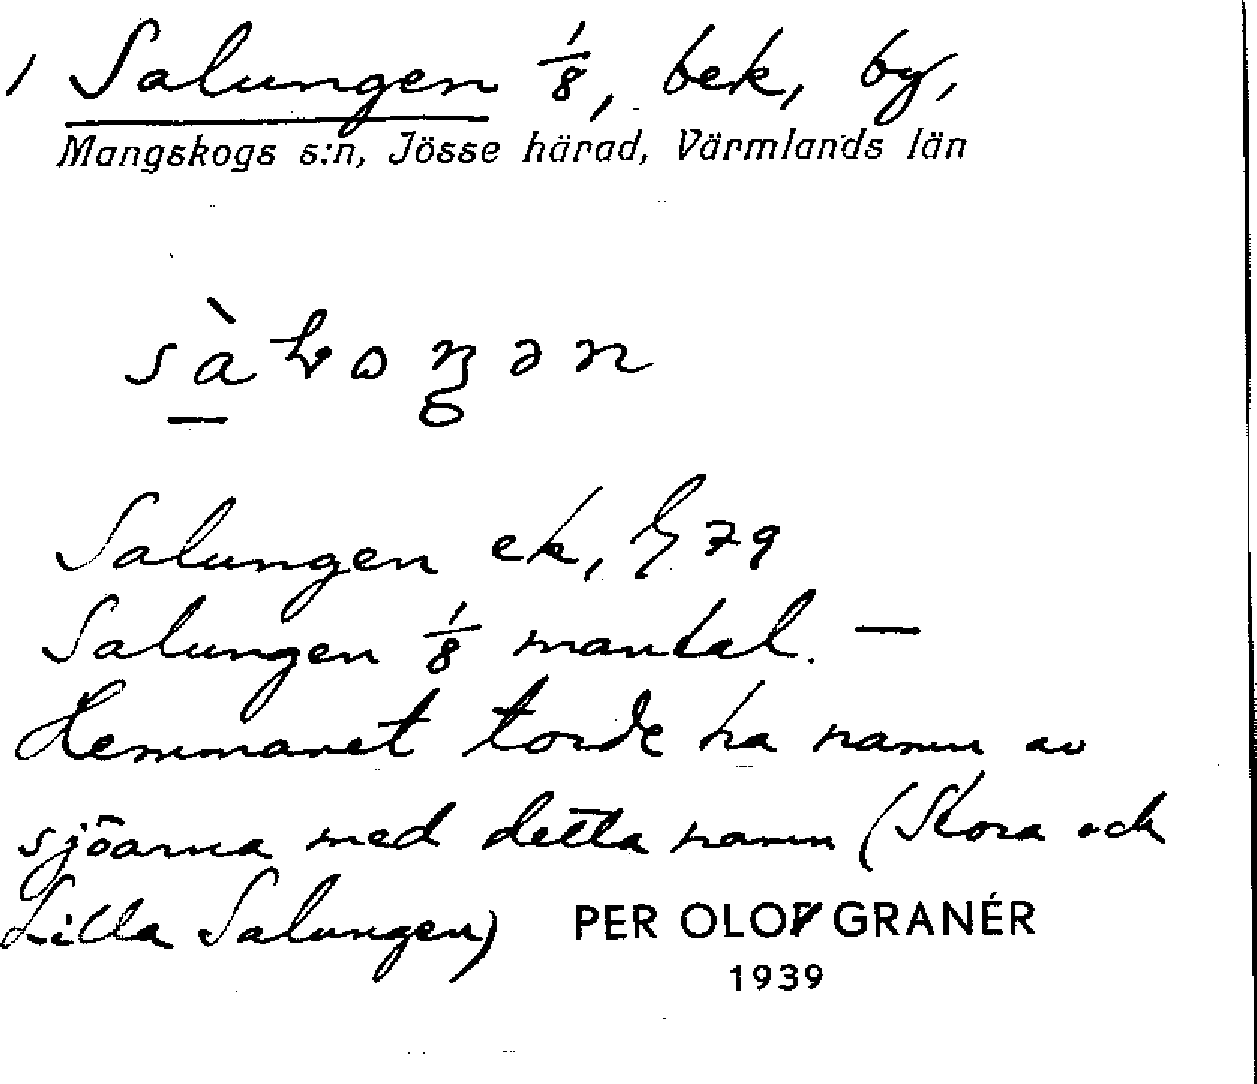 1 Salungen 1/8, bek, by,
Mangskogs s:n, Jösse härad, Värmlands län
Salungen ek, G 79
Salungen 1/8 mantal. —
Hemmanet torde ha namn av
sjöarna med detta namn (Stora och
Lilla Salungen)
PER OLOF GRANÉR
1939